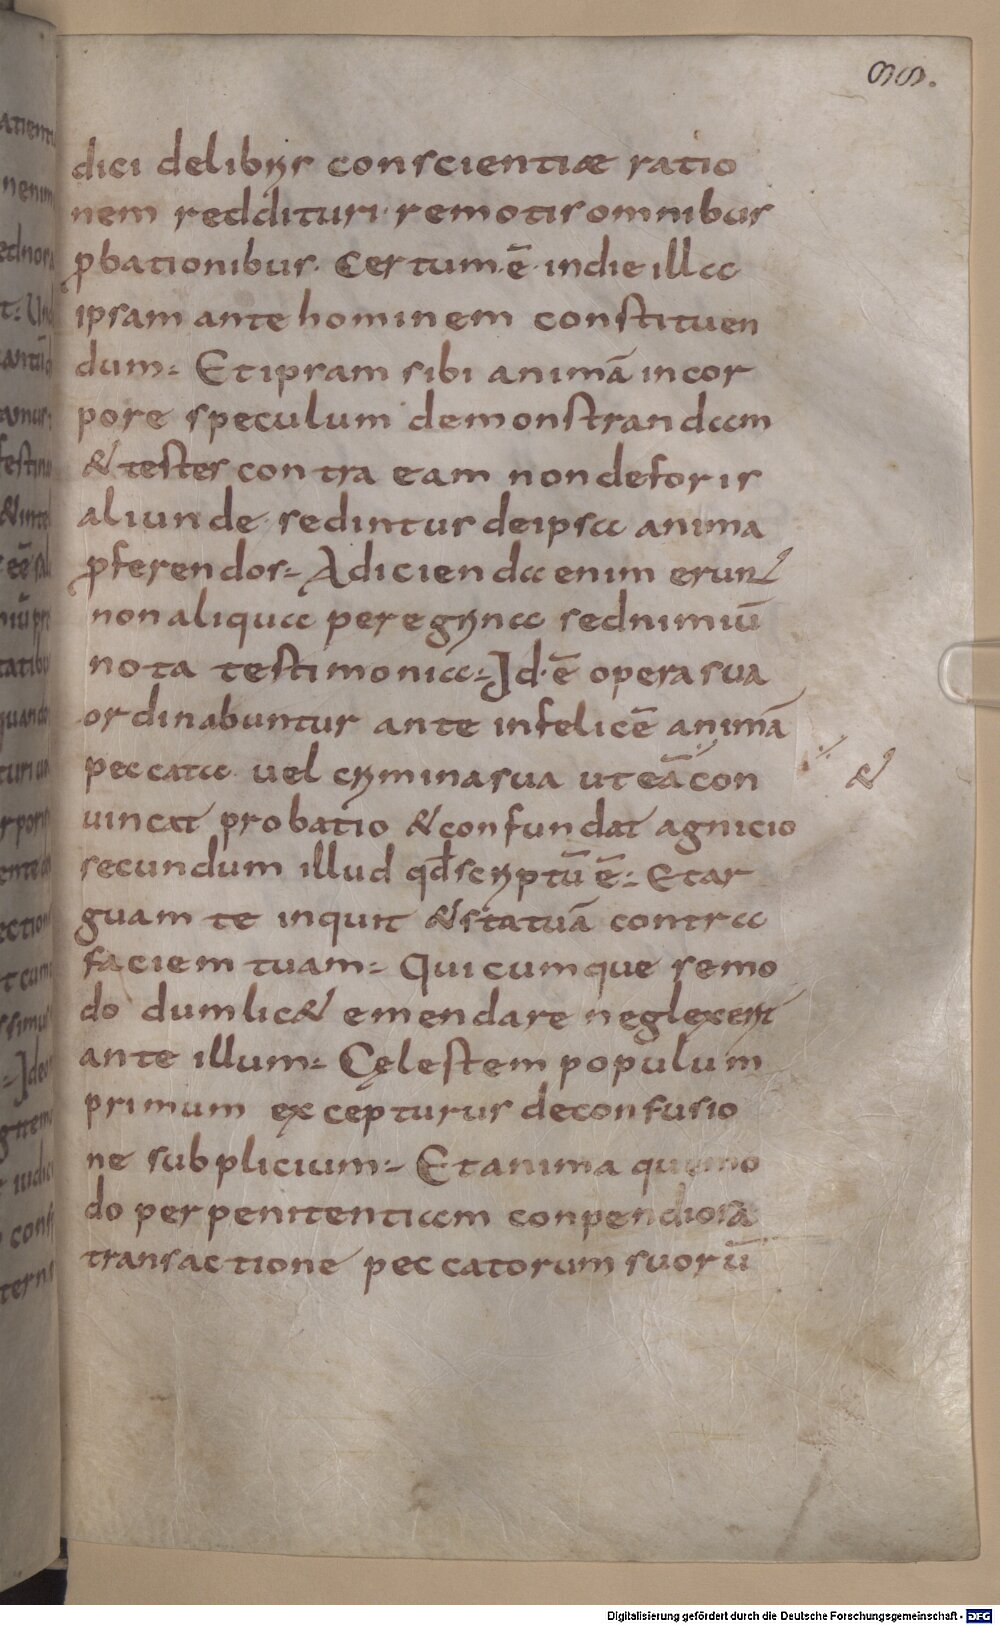 33.
dici delibris conscientiæ ratio
nem reddituri· remotis omnibus
p̱bationibus· Certum·ē· indie illa
ipsam ante hominem constituen
dum:- Et ipsam sibi animā incor
pore speculum demonstrandam
& testes contra eam non deforis
aliunde· sedintus deipsa anima
p̱ferendos:- Adicienda enim erunt
non aliqua peregrina sednimiū
nota testimonia:- Id·ē opera sua
ordinabuntur ante infelicē animā
peccata· vel crimina sua uteā con
uincat probatio & confundat agnicio
secundum illud qđ scriptū ē:- Etar
guam te inquit & statuā contra
faciem tuam:- Quicumque semo
do dum lic& emendare neglexerit
ante illum:- Cęlestem populum
primum excepturus deconfusio
ne subplicium:- Et anima quæmo
do per penitentiam conpendiosa
transactione peccatorum suorū
&
Digitalisierung gefördert durch die Deutsche Forschungsgemeinschaft - DFG